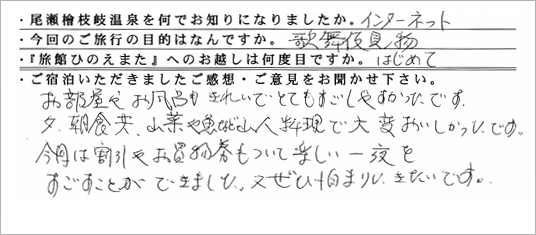 ・尾瀬檜枝岐温泉を何でお知りになりましたか。インターネット
・今回のご旅行の目的はなんですか。歌舞伎見物
・『旅館ひのえまた』へのお越しは何度目ですか。はじめて
・ご宿泊いただきましたご感想・ご意見をお聞かせ下さい。
お部屋やお風呂もきれいでとてもすごしやすかったです。
夕、朝食共、山菜や魚など山人料理で大変おいしかったです。
今回は割引やお買物券もついて楽しい一夜を
すごすことができました。又ぜひ泊まりにきたいです。